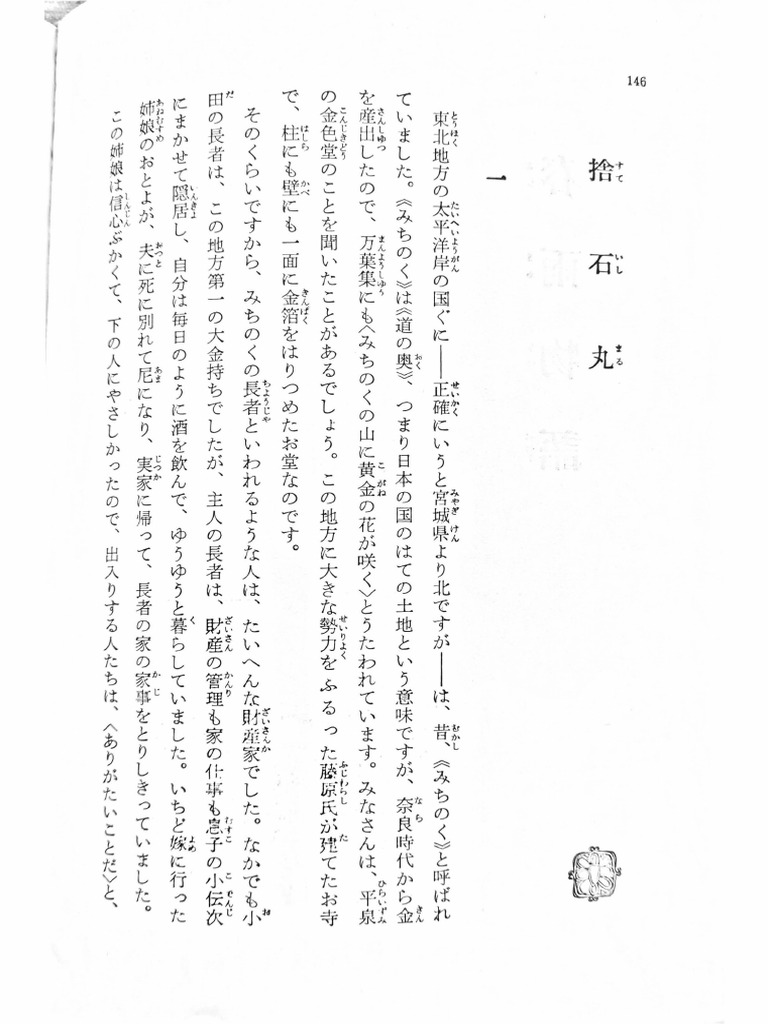 146
捨石丸
一
東北地方の太平洋岸の国ぐに――正確にいうと宮城県より北ですが――は、昔、《みちのく》と呼ばれ
ていました。《みちのく》は《道の奥》、つまり日本の国のはての土地という意味ですが、奈良時代から金
を産出したので、万葉集にも〈みちのくの山に黄金の花が咲く〉とうたわれています。みなさんは、平泉
の金色堂のことを聞いたことがあるでしょう。この地方に大きな勢力をふるった藤原氏が建てたお寺
で、柱にも壁にも一面に金箔をはりつめたお堂なのです。
そのくらいですから、みちのくの長者といわれるような人は、たいへんな財産家でした。なかでも小
田の長者は、この地方第一の大金持ちでしたが、主人の長者は、財産の管理も家の仕事も息子の小伝次
にまかせて隠居し、自分は毎日のように酒を飲んで、ゆうゆうと暮らしていました。いちど嫁に行った
姉娘のおとよが、夫に死に別れて尼になり、実家に帰って、長者の家の家事をとりしきっていました。
この姉娘は信心ぶかくて、下の人にやさしかったので、出入りする人たちは、〈ありがたいことだ〉と、